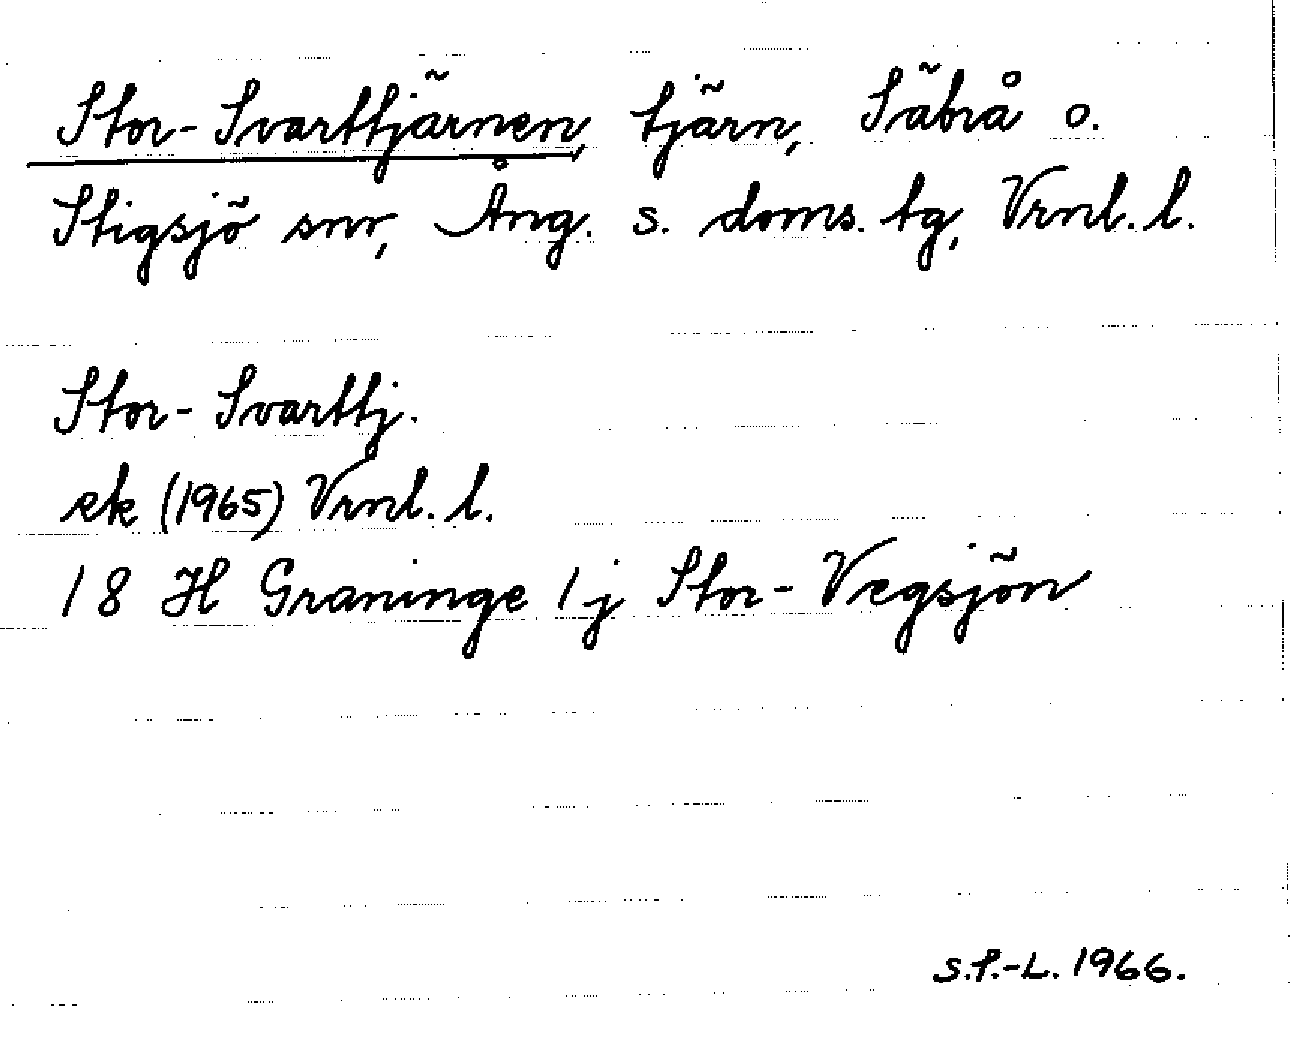 Stor-Svarttjärnen, tjärn, Säbrå o.
Stigsjö snr, Ång. s. doms. tg, Vrnl. l.
Stor-Svarttj.
ek (1965) Vrnl. l.
18 H Graninge 1 j Stor-Vegsjön
S.P.-L. 1966.